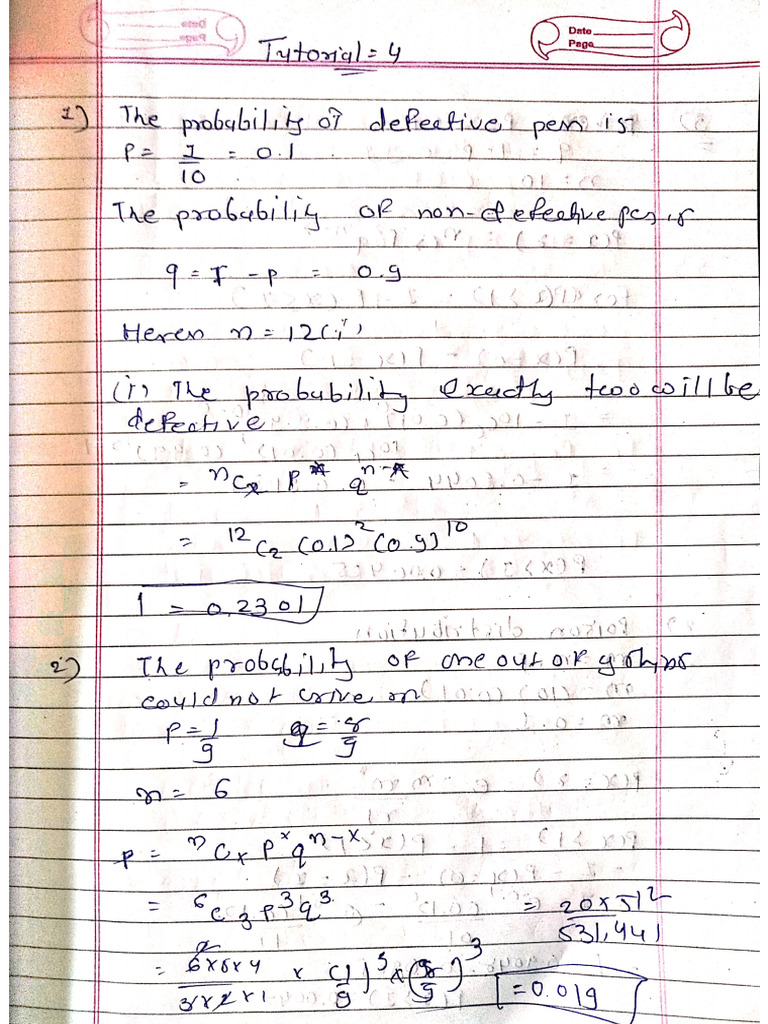 Date
Page
Tutorial = 4
1) The probability of defective pen is
P = 1/10 = 0.1
The probability of non-defective pens is
q = 1 - p = 0.9
Heren n = 12
(i) The probability exactly two will be
defective
= nCx P^x q^n-x
= 12C2 (0.1)^2 (0.9)^10
= 0.2301
2) The probability of one out of 9 ships
could not arrive
P = 1/9 q = 8/9
n = 6
P = nCx P^x q^n-x
= 6C3 P^3 q^3
= 20 x 512 / 531,441
= 6x5x4 / 3x2x1 x (1/9)^3 x (8/9)^3
= 0.019